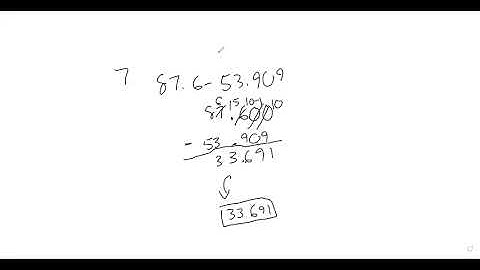 7 87.6-53.909
6 15 10 10
87.600
- 53.909
33.691
33.691